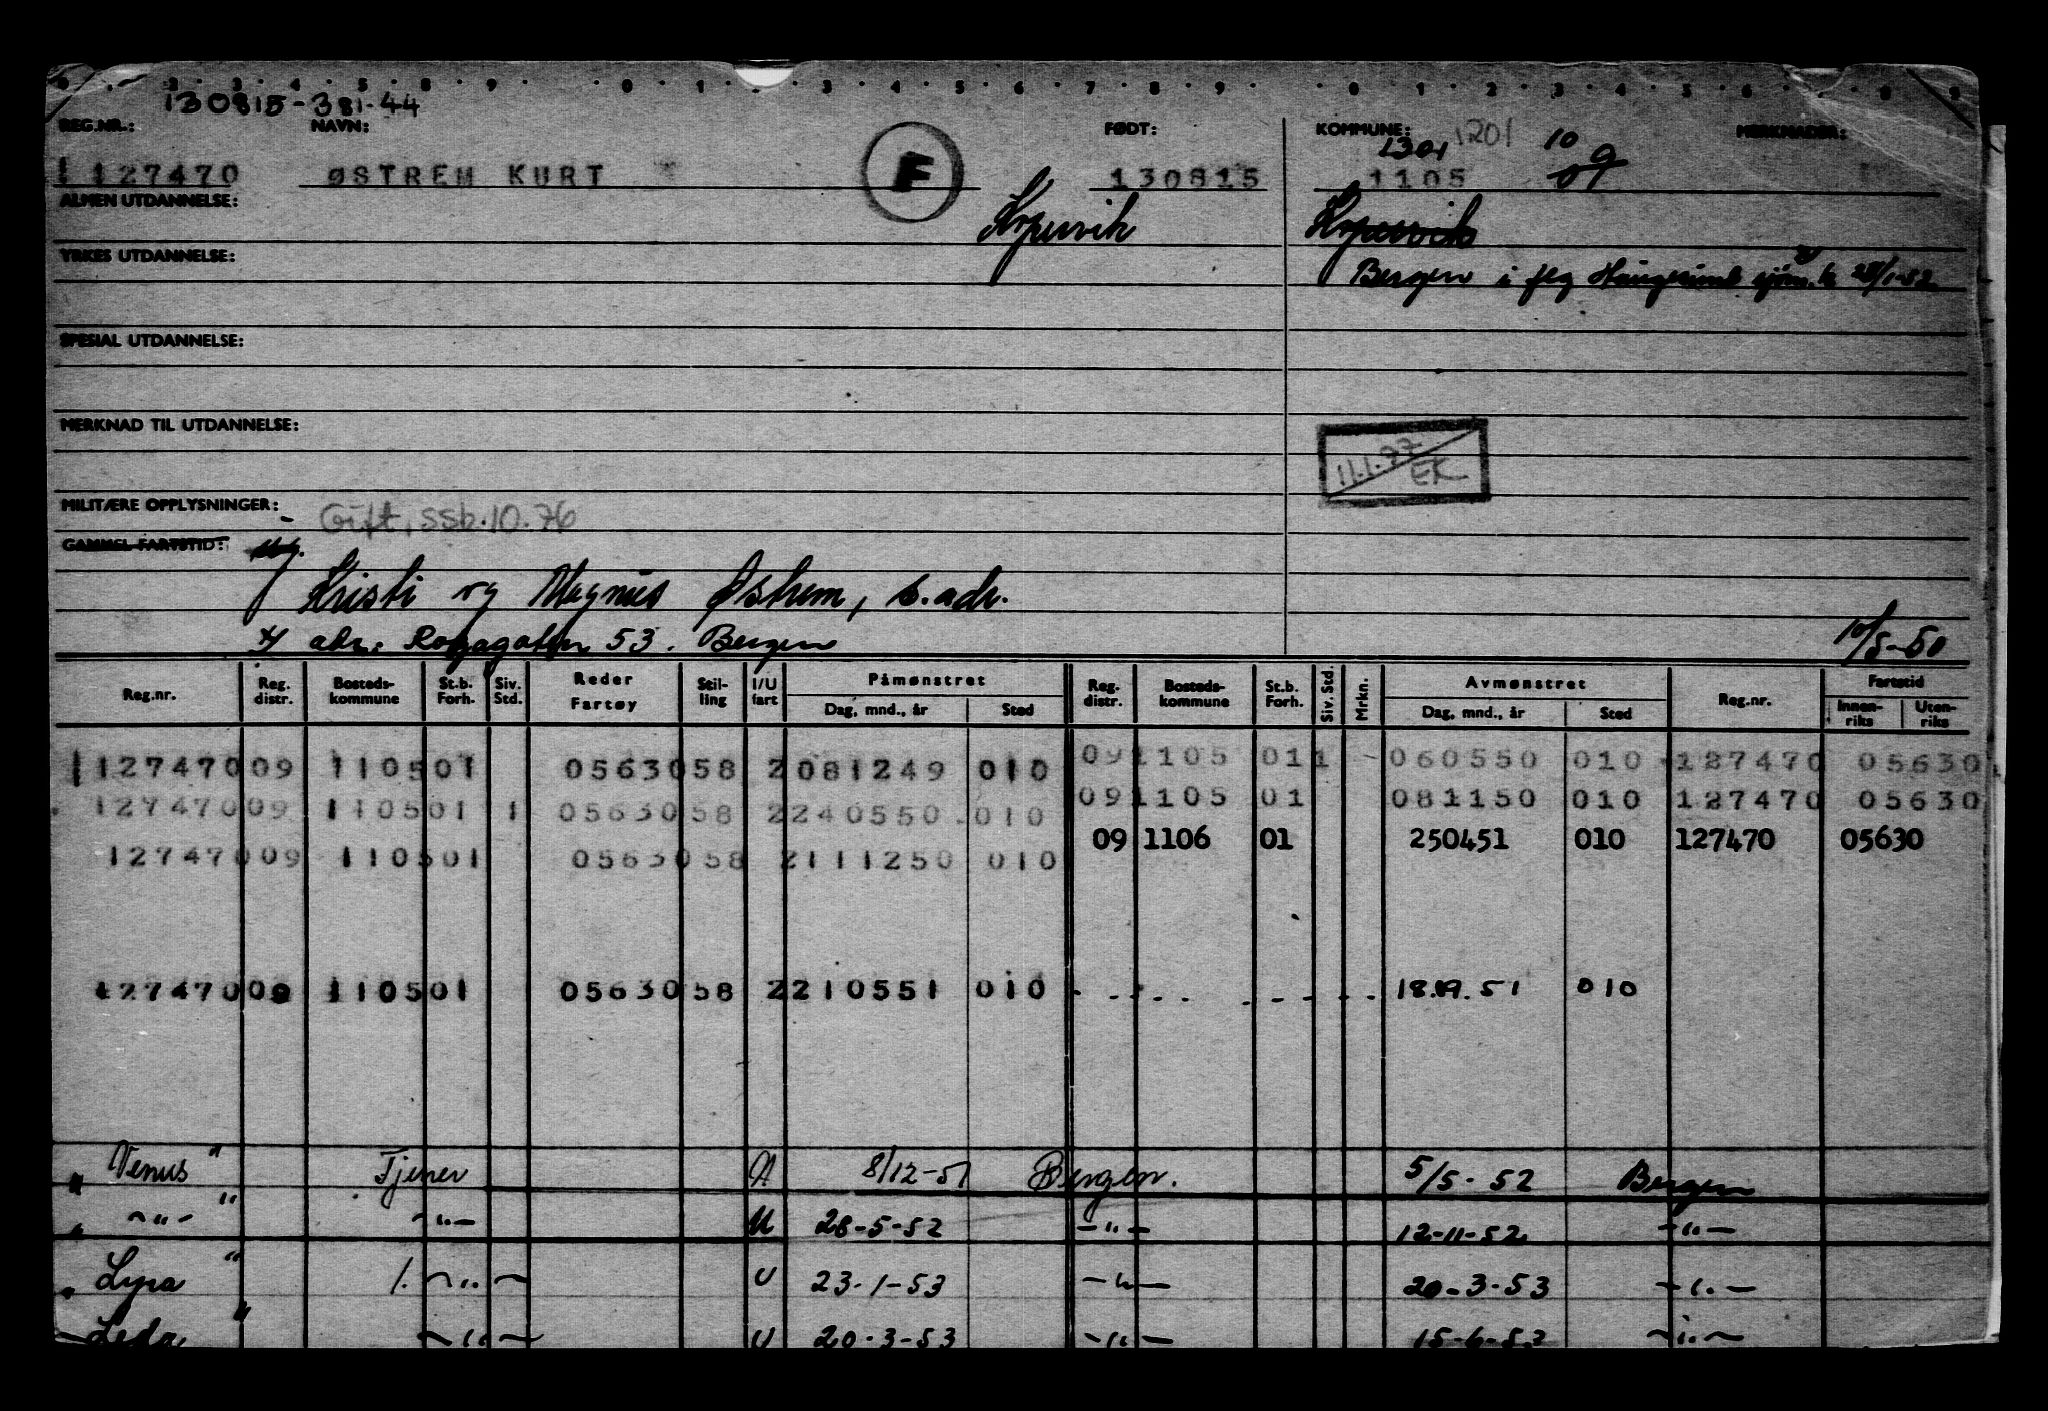 130815-381-44
REG.NR.: NAVN: FØDT: KOMMUNE: 1301 1201 10 MERKNADER:
127470 ØSTREM KURT F 130815 1105 09
ALMEN UTDANNELSE: Kopervik Kopervik
YRKES UTDANNELSE: Bergen i flg Haugesund sjøm.k 28/1-52
SPESIAL UTDANNELSE:
MERKNAD TIL UTDANNELSE:
11.1.77 EK
MILITÆRE OPPLYSNINGER: Gift, ssb.10.76
GAMMEL FARTSTID:
Kristi og Magnus Østrem, s.adr.
adr: Rogagaten 53. Bergen 10/5-50
Reg.nr. Reg. distr. Bosteds-kommune St.b. Forh. Siv. Std. Reder Fartøy Stil-ling I/U fart Påmønstret Dag, mnd., år Sted Reg. distr. Bosteds-kommune St.b. Forh. Siv. Std. Mrkn. Avmønstret Dag, mnd., år Sted Reg.nr. Fartstid Innen-riks Uten-riks
127470 09 1105 01 05630 58 2 081249 010 09 1105 01 1 - 060550 010 127470 05630
127470 09 1105 01 1 05630 58 2 240550 010 09 1105 01 081150 010 127470 05630
127470 09 1105 01 05630 58 2 111250 010 09 1106 01 250451 010 127470 05630
127470 09 1105 01 05630 58 2 210551 010 18.09.51 010
"Venus" Tjener U 8/12-51 Bergen. 5/5-52 Bergen
" -"- " -"- U 28-5-52 -"- 12-11-52 -"-
"Lyra" 1. -"- U 23-1-53 -"- 20-3-53 -"-
"Leda" -"- U 20-3-53 -"- 15-6-53 -"-